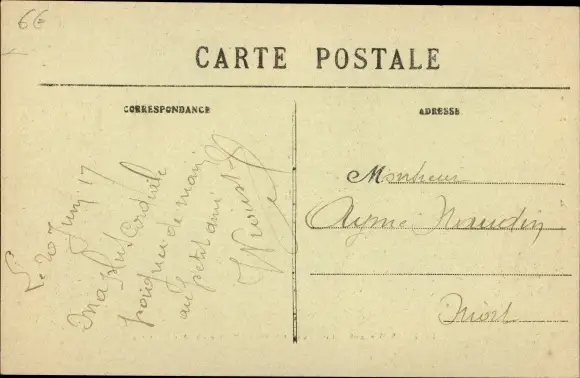 6€
CARTE POSTALE
CORRESPONDANCE
ADRESSE
Le 20 Juin 17
Ma plus cordiale
poignée de main
au petit ami
Monsieur
Aymé Naudin
Niort